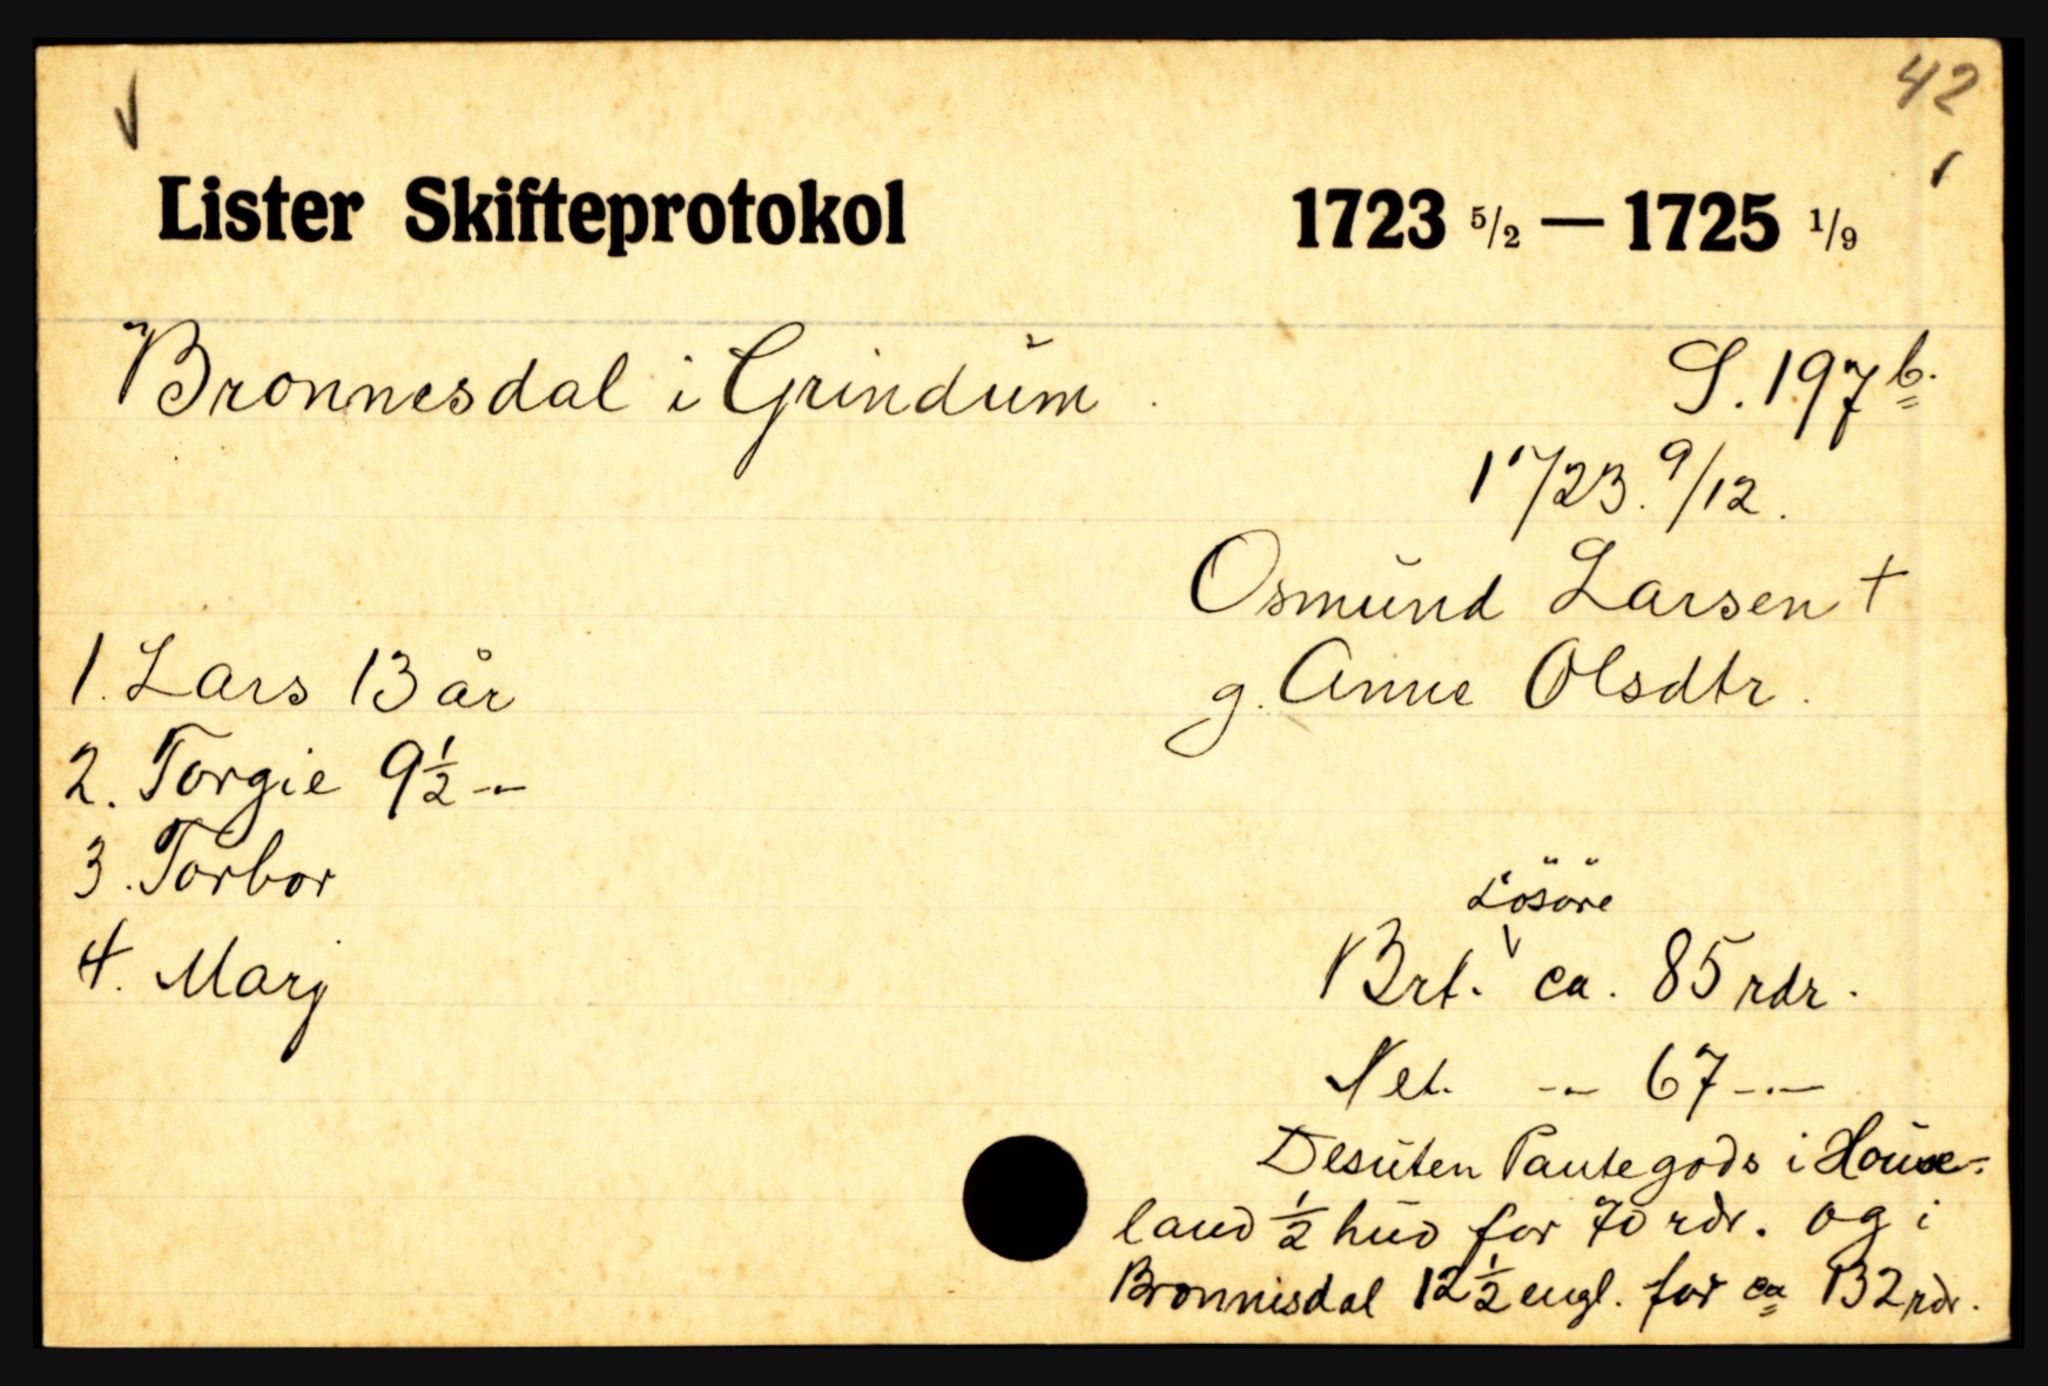 42
Lister Skifteprotokol 1723 5/2 — 1725 1/9
Bronnesdal i Grindum. S. 197 b.
1723. 9/12.
Osmund Larsen †
g. Anne Olsdtr.
1. Lars 13 år
2. Torgie 9½ -"-
3. Torbor
4. Marj
Lösöre
Brt. ca. 85 rdr.
Net. -"- 67 -"-
Desuten Pantegods i House-
land ½ hud for 70 rdr. og i
Bronnisdal 12½ engl. for ca 132 rdr.